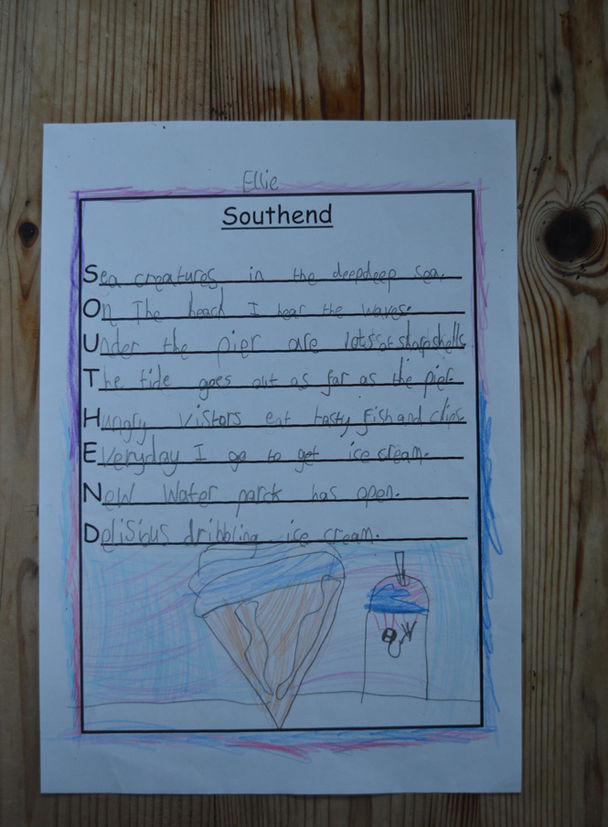 Ellie
Southend
Sea creatures in the deepdeep sea.
On The beach I hear the waves.
Under the pier are lots of sharp shells
The tide goes out as far as the pier.
Hungry Vistors eat tasty fish and chips.
Everyday I go to get ice cream.
New Water parck has open.
Delisious dribbling ice cream.